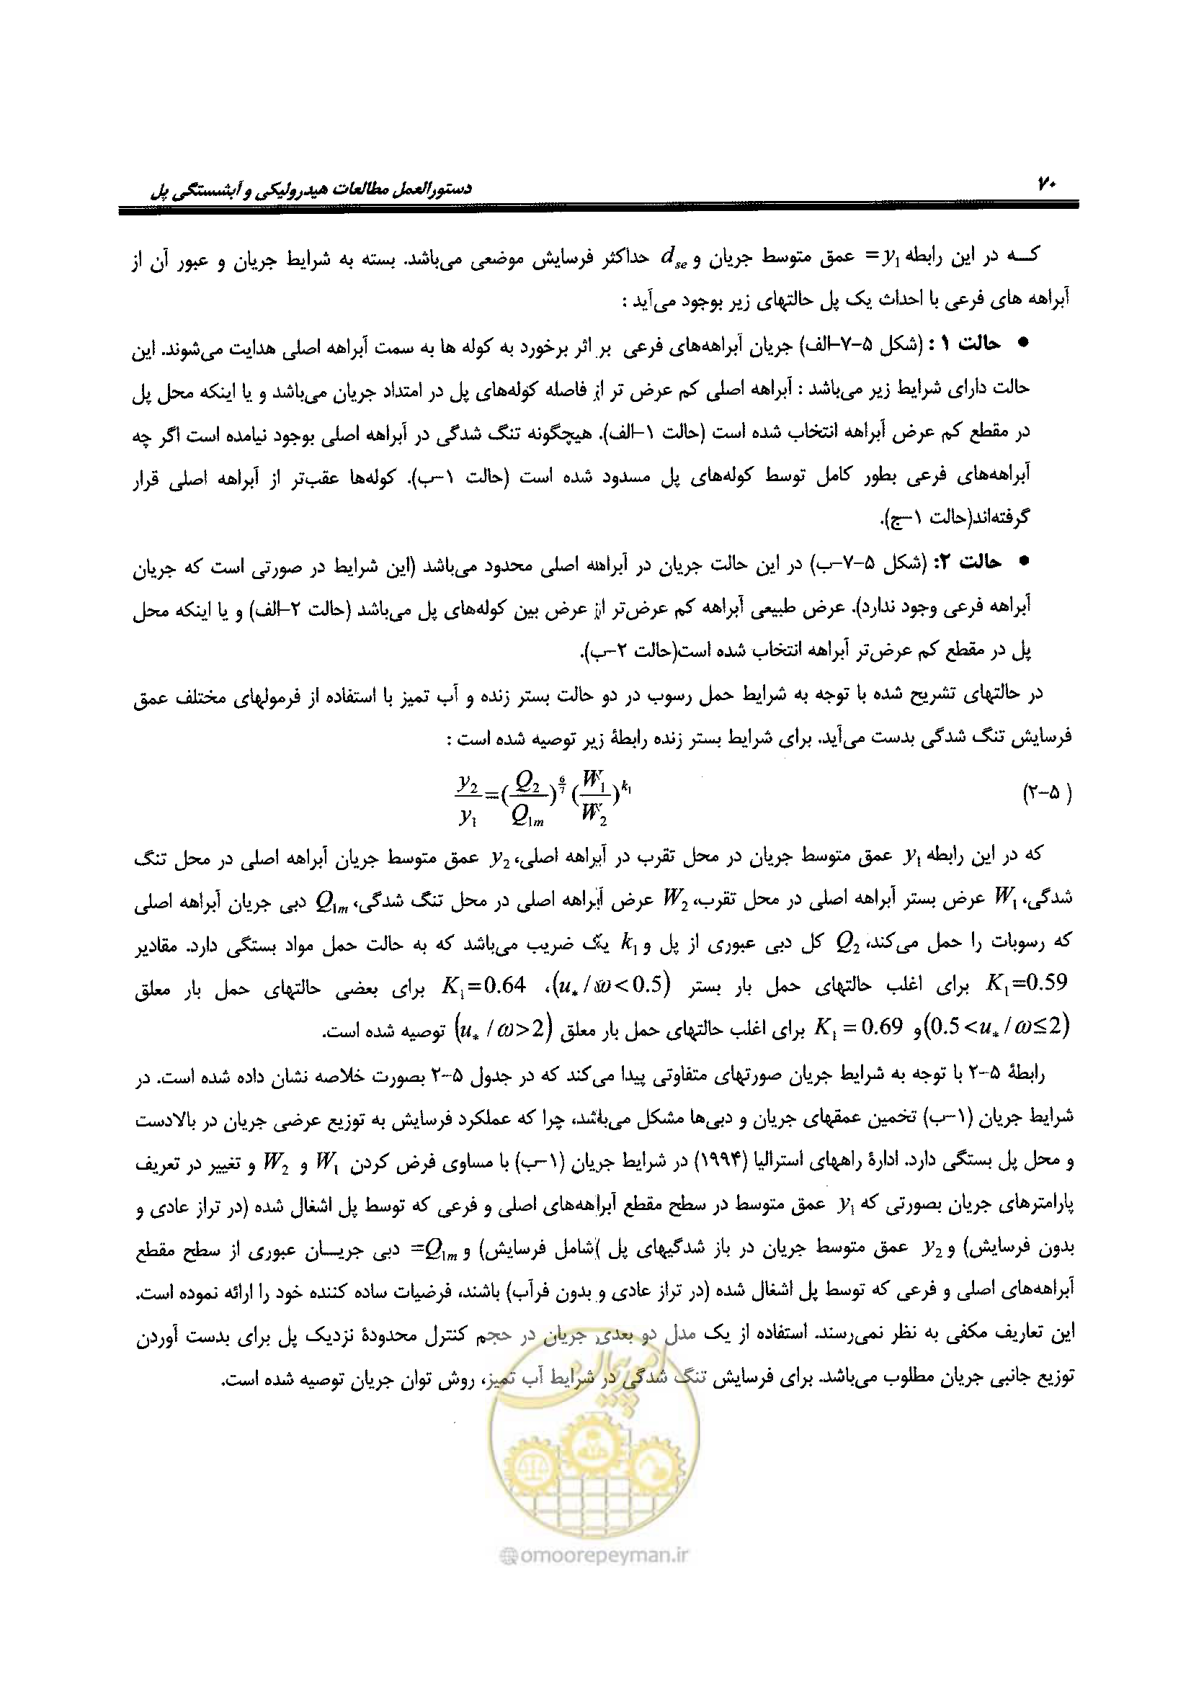 ۷۰
دستورالعمل مطالعات هیدرولیکی و آبشستگی پل
کـــه در این رابطه y₁ = عمق متوسط جریان و d_se حداکثر فرسایش موضعی می‌باشد. بسته به شرایط جریان و عبور آن از
آبراهه های فرعی با احداث یک پل حالتهای زیر بوجود می‌آید :
• حالت ۱ : (شکل ۵-۷-الف) جریان آبراهه‌های فرعی بر اثر برخورد به کوله ها به سمت آبراهه اصلی هدایت می‌شوند. این
حالت دارای شرایط زیر می‌باشد : آبراهه اصلی کم عرض تر از فاصله کوله‌های پل در امتداد جریان می‌باشد و یا اینکه محل پل
در مقطع کم عرض آبراهه انتخاب شده است (حالت ۱-الف). هیچگونه تنگ شدگی در آبراهه اصلی بوجود نیامده است اگر چه
آبراهه‌های فرعی بطور کامل توسط کوله‌های پل مسدود شده است (حالت ۱-ب). کوله‌ها عقب‌تر از آبراهه اصلی قرار
گرفته‌اند(حالت ۱-ج).
• حالت ۲: (شکل ۵-۷-ب) در این حالت جریان در آبراهه اصلی محدود می‌باشد (این شرایط در صورتی است که جریان
آبراهه فرعی وجود ندارد). عرض طبیعی آبراهه کم عرض‌تر از عرض بین کوله‌های پل می‌باشد (حالت ۲-الف) و یا اینکه محل
پل در مقطع کم عرض‌تر آبراهه انتخاب شده است(حالت ۲-ب).
در حالتهای تشریح شده با توجه به شرایط حمل رسوب در دو حالت بستر زنده و آب تمیز با استفاده از فرمولهای مختلف عمق
فرسایش تنگ شدگی بدست می‌آید. برای شرایط بستر زنده رابطهٔ زیر توصیه شده است :
(۵-۲) y₂/y₁ = (Q₂/Q₁ₘ)^(6/7) (W₁/W₂)^k₁
که در این رابطه y₁ عمق متوسط جریان در محل تقرب در آبراهه اصلی، y₂ عمق متوسط جریان آبراهه اصلی در محل تنگ
شدگی، W₁ عرض بستر آبراهه اصلی در محل تقرب، W₂ عرض آبراهه اصلی در محل تنگ شدگی، Q₁ₘ دبی جریان آبراهه اصلی
که رسوبات را حمل می‌کند، Q₂ کل دبی عبوری از پل و k₁ یک ضریب می‌باشد که به حالت حمل مواد بستگی دارد. مقادیر
K₁=0.59 برای اغلب حالتهای حمل بار بستر (u* / ω<0.5)، K₁=0.64 برای بعضی حالتهای حمل بار معلق
(0.5<u* / ω≤2) و K₁ = 0.69 برای اغلب حالتهای حمل بار معلق (u* / ω>2) توصیه شده است.
رابطهٔ ۵-۲ با توجه به شرایط جریان صورتهای متفاوتی پیدا می‌کند که در جدول ۵-۲ بصورت خلاصه نشان داده شده است. در
شرایط جریان (۱-ب) تخمین عمقهای جریان و دبی‌ها مشکل می‌باشد، چرا که عملکرد فرسایش به توزیع عرضی جریان در بالادست
و محل پل بستگی دارد. ادارهٔ راههای استرالیا (۱۹۹۴) در شرایط جریان (۱-ب) با مساوی فرض کردن W₁ و W₂ و تغییر در تعریف
پارامترهای جریان بصورتی که y₁ عمق متوسط در سطح مقطع آبراهه‌های اصلی و فرعی که توسط پل اشغال شده (در تراز عادی و
بدون فرسایش) و y₂ عمق متوسط جریان در باز شدگیهای پل )شامل فرسایش) و Q₁ₘ= دبی جریـــان عبوری از سطح مقطع
آبراهه‌های اصلی و فرعی که توسط پل اشغال شده (در تراز عادی و بدون فرآب) باشند، فرضیات ساده کننده خود را ارائه نموده است.
این تعاریف مکفی به نظر نمی‌رسند. استفاده از یک مدل دو بعدی جریان در حجم کنترل محدودهٔ نزدیک پل برای بدست آوردن
توزیع جانبی جریان مطلوب می‌باشد. برای فرسایش تنگ شدگی در شرایط آب تمیز، روش توان جریان توصیه شده است.
امور پیمان
@omoorepeyman.ir